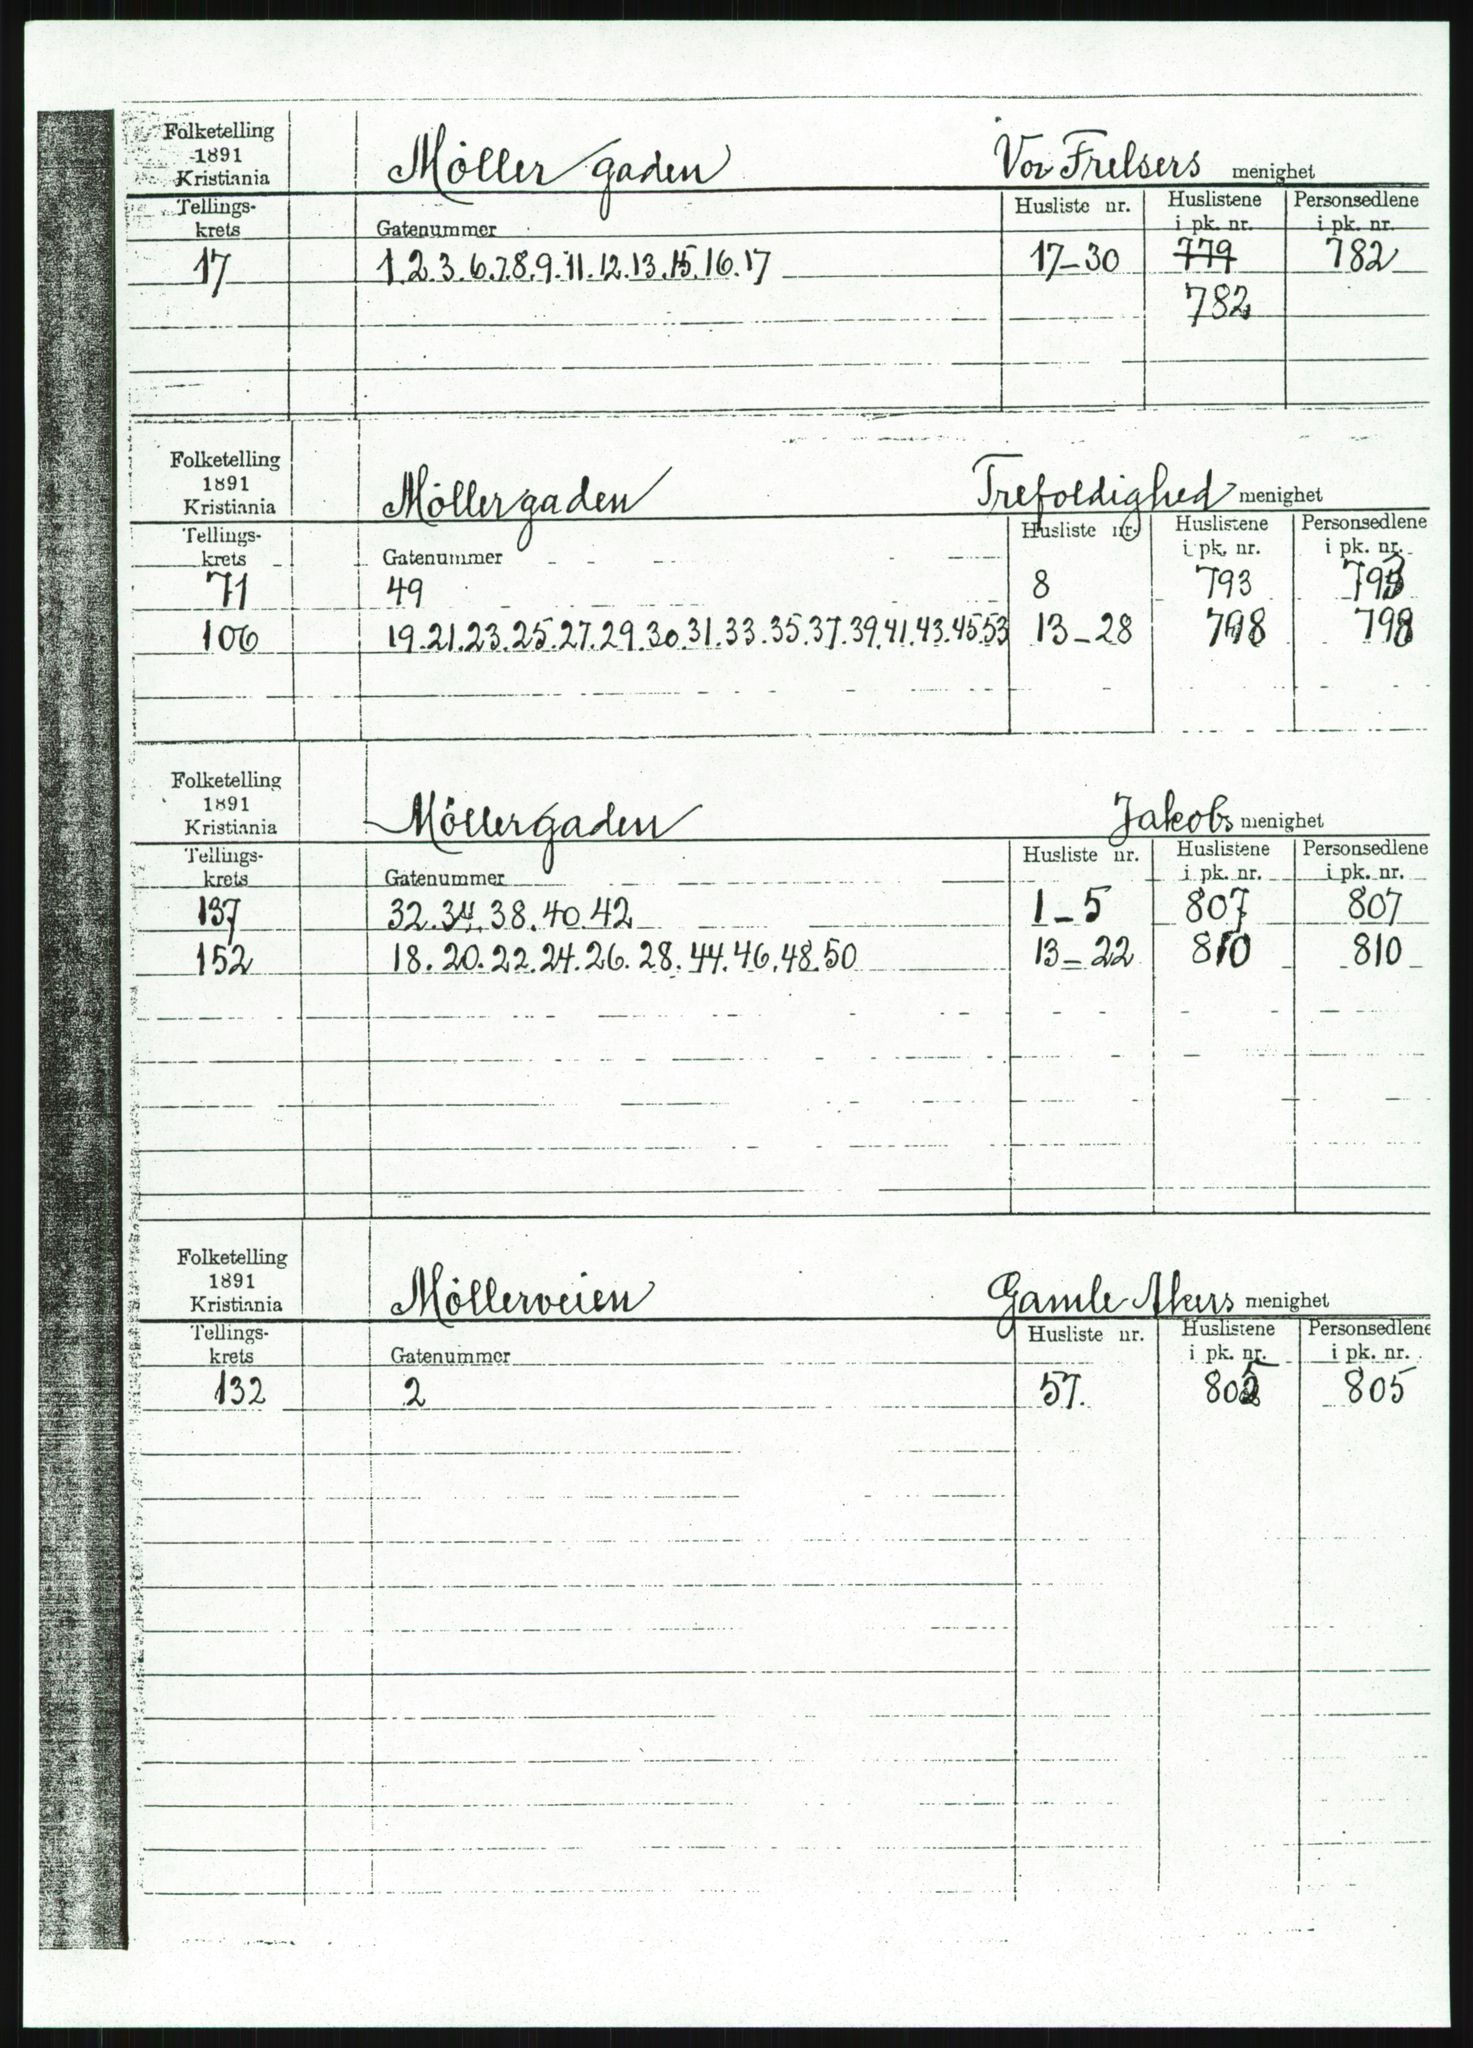 Folketelling
1891
Kristiania
Möller gaden Vor Frelsers menighet
Tellings- Husliste nr. Huslistene Personsedlene
krets Gatenummer i pk. nr. i pk. nr.
17 1.2.3.6.7.8.9.11.12.13.15.16.17 17-30 779 782
782
Folketelling
1891
Kristiania
Möllergaden Trefoldighed menighet
Tellings- Husliste nr. Huslistene Personsedlene
krets Gatenummer i pk. nr. i pk. nr.
71 49 8 793 793
106 19.21.23.25.27.29.30.31.33.35.37.39.41.43.45.53 13-28 798 798
Folketelling
1891
Kristiania
Möllergaden Jakobs menighet
Tellings- Husliste nr. Huslistene Personsedlene
krets Gatenummer i pk. nr. i pk. nr.
137 32.34.38.40.42 1-5 807 807
152 18.20.22.24.26.28.44.46.48.50 13-22 810 810
Folketelling
1891
Kristiania
Möllerveien Gamle Akers menighet
Tellings- Husliste nr. Huslistene Personsedlene
krets Gatenummer i pk. nr. i pk. nr.
132 2 57. 805 805